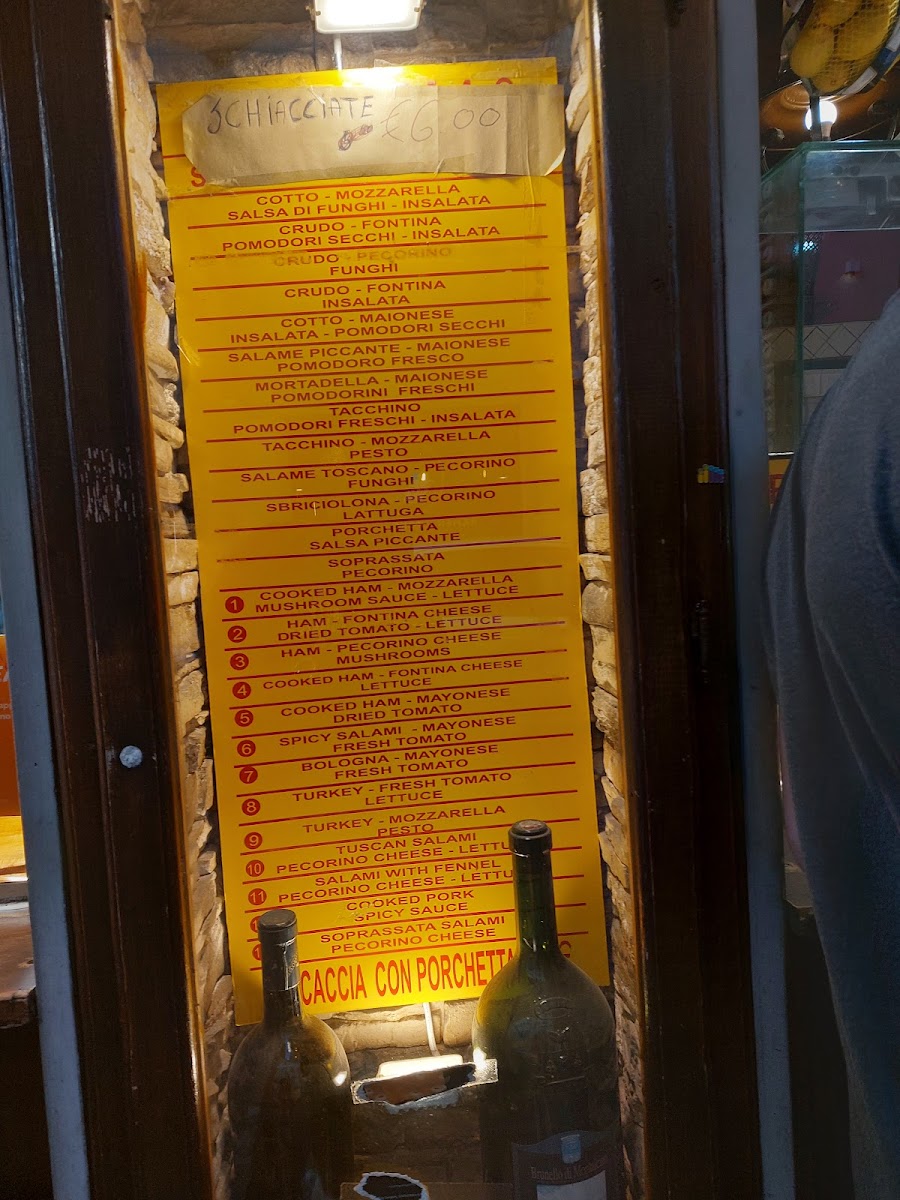 SCHIACCIATE €6 00
COTTO - MOZZARELLA
SALSA DI FUNGHI - INSALATA
CRUDO - FONTINA
POMODORI SECCHI - INSALATA
CRUDO - PECORINO
FUNGHI
CRUDO - FONTINA
INSALATA
COTTO - MAIONESE
INSALATA - POMODORI SECCHI
SALAME PICCANTE - MAIONESE
POMODORO FRESCO
MORTADELLA - MAIONESE
POMODORINI FRESCHI
TACCHINO
POMODORI FRESCHI - INSALATA
TACCHINO - MOZZARELLA
PESTO
SALAME TOSCANO - PECORINO
FUNGHI
SBRICIOLONA - PECORINO
LATTUGA
PORCHETTA
SALSA PICCANTE
SOPRASSATA
PECORINO
1 COOKED HAM - MOZZARELLA
MUSHROOM SAUCE - LETTUCE
2 HAM - FONTINA CHEESE
DRIED TOMATO - LETTUCE
3 HAM - PECORINO CHEESE
MUSHROOMS
4 COOKED HAM - FONTINA CHEESE
LETTUCE
5 COOKED HAM - MAYONESE
DRIED TOMATO
6 SPICY SALAMI - MAYONESE
FRESH TOMATO
7 BOLOGNA - MAYONESE
FRESH TOMATO
8 TURKEY - FRESH TOMATO
LETTUCE
9 TURKEY - MOZZARELLA
PESTO
10 TUSCAN SALAMI
PECORINO CHEESE - LETTU
11 SALAMI WITH FENNEL
PECORINO CHEESE - LETTU
COOKED PORK
SPICY SAUCE
SOPRASSATA SALAMI
PECORINO CHEESE
CACCIA CON PORCHETTA